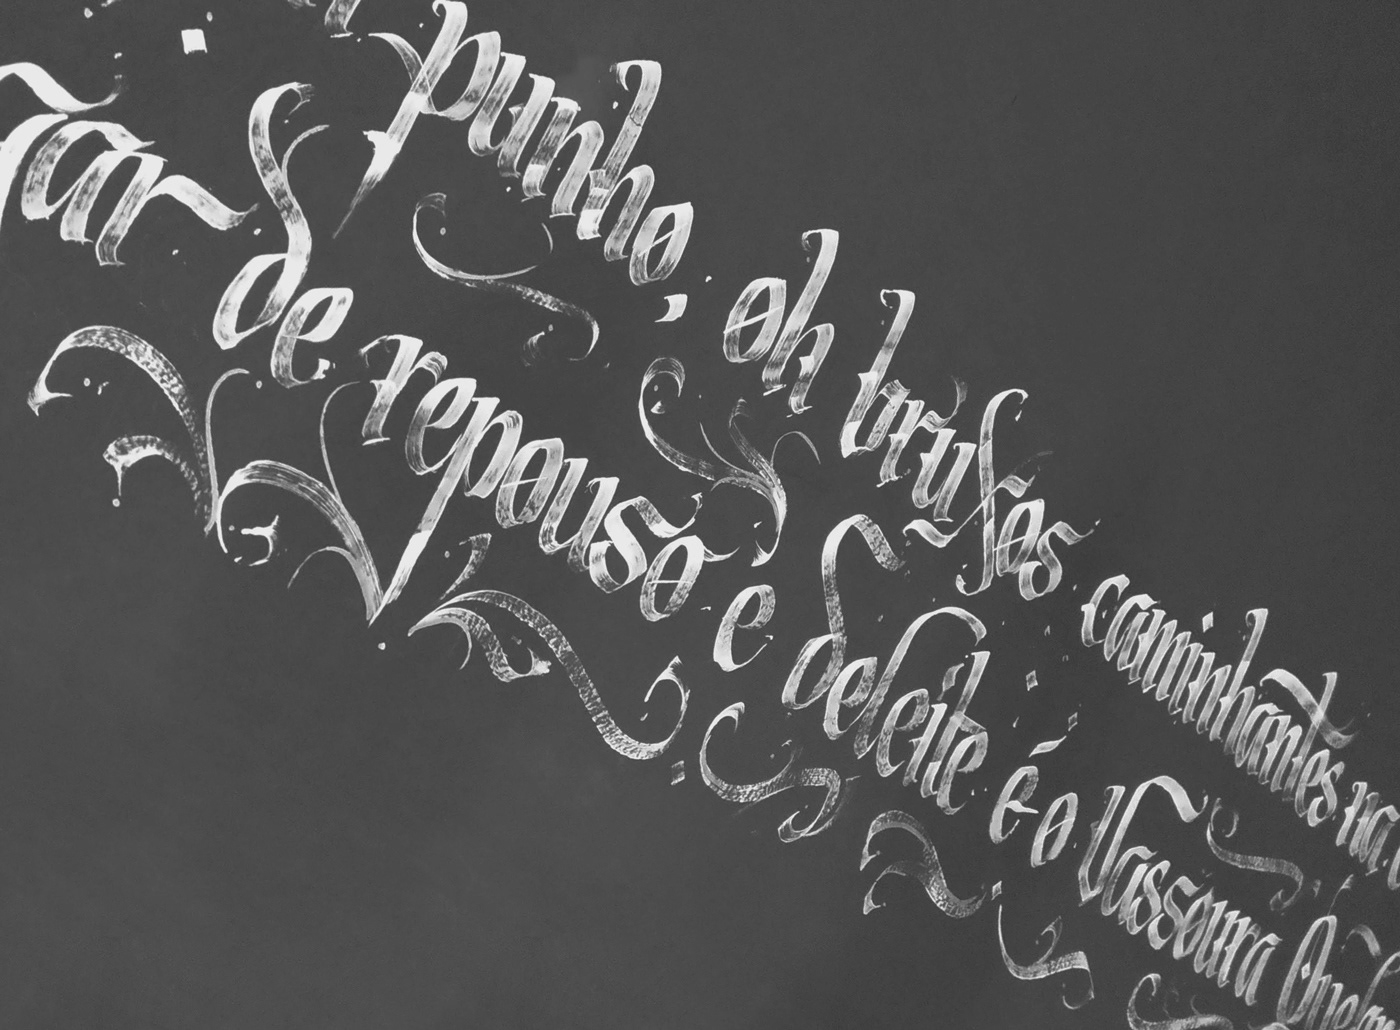 punho, oh bruxos caminhantes na
de repouso e deleite é o Vassoura